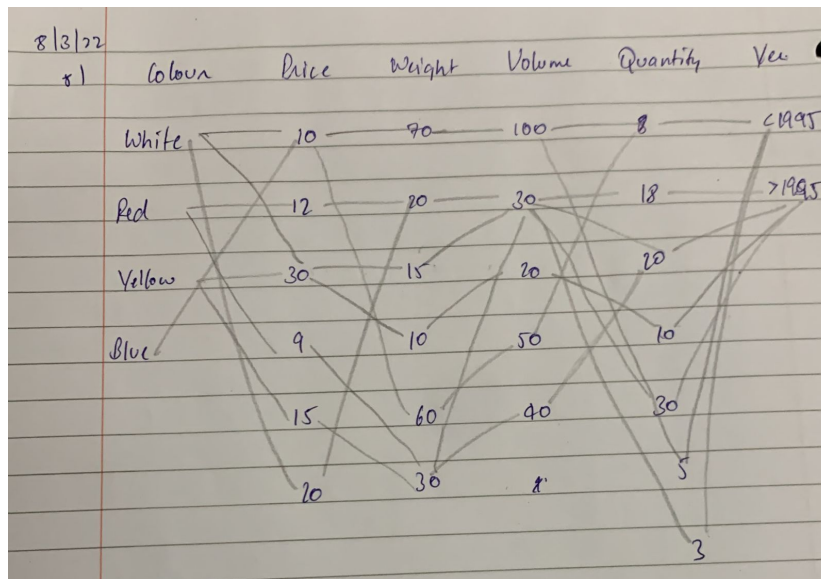 8/3/22
*1 Colour Price Weight Volume Quantity
White 10 70 100 8 <1995
Red 12 20 30 18 >1995
Yellow 30 15 20 20
Blue 9 10 50 10
15 60 40 30
20 30 5
3